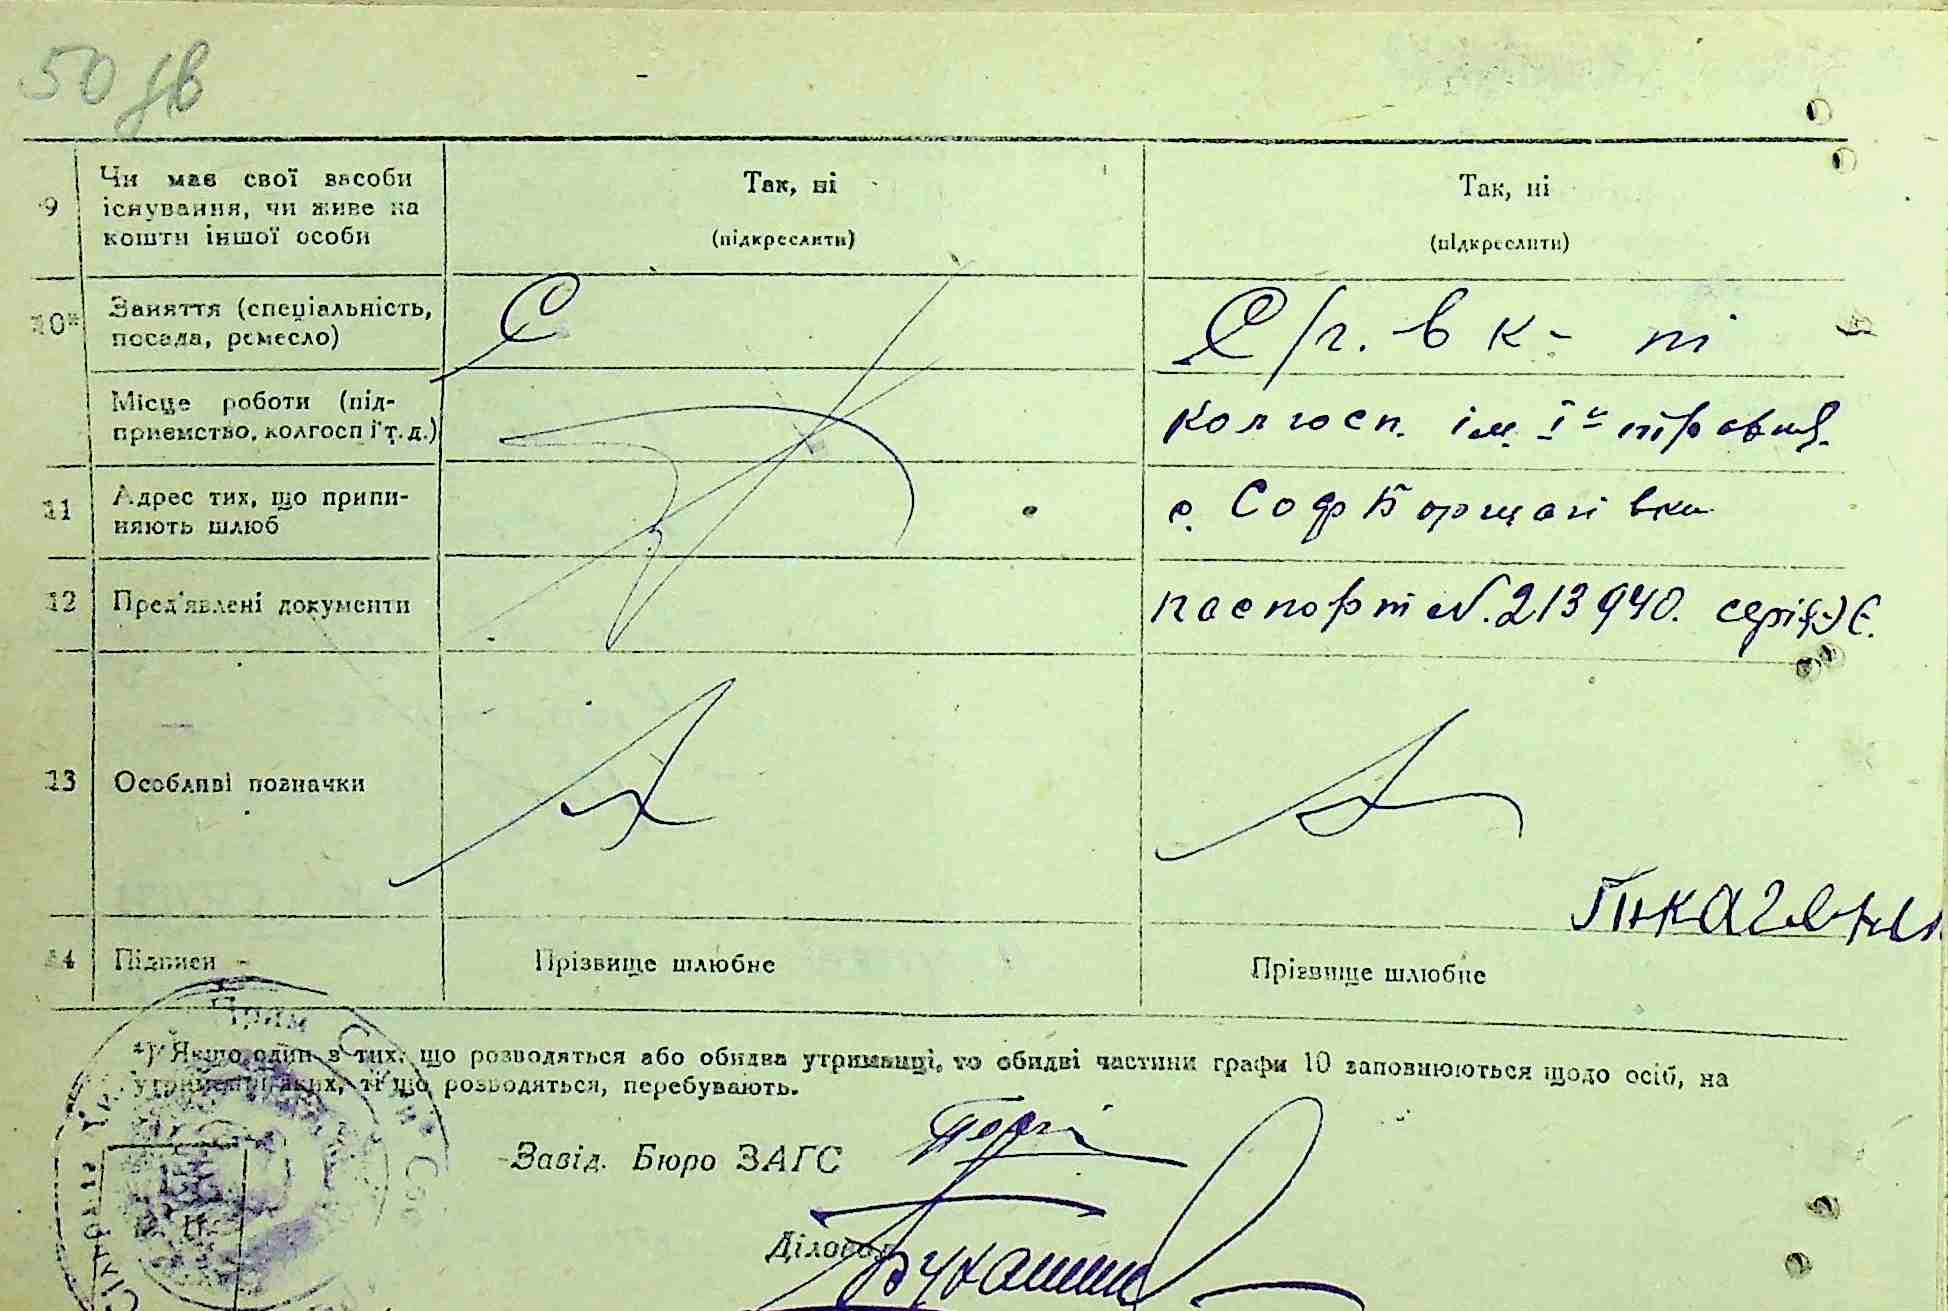 50 зв
9 Чи має свої засоби Так, ні Так, ні
існування, чи живе на
кошти іншої особи (підкреслити) (підкреслити)
10* Заняття (спеціальність, С/г. в к-
посада, ремесло)
Місце роботи (під- колгосп. ім. І травня.
приємство, колгосп і т. д.)
11 Адрес тих, що припи- с. Соф Борщагівка
няють шлюб
12 Пред'явлені документи паспорт №. 213940. серія
13 Особливі позначки
14 Підписи - Прізвище шлюбне Прізвище шлюбне
*) Якщо один з тих, що розводяться або обидва утриманці, то обидві частини графи 10 заповнюються щодо осіб, на
утриманні яких, ті що розводяться, перебувають.
Завід. Бюро ЗАГС
Діловод